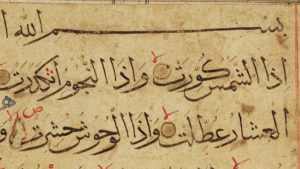 بسم الله ا
اذا الشمس كورت واذا النجوم انكدرت
العشار عطلت واذا الوحوش حشرت و